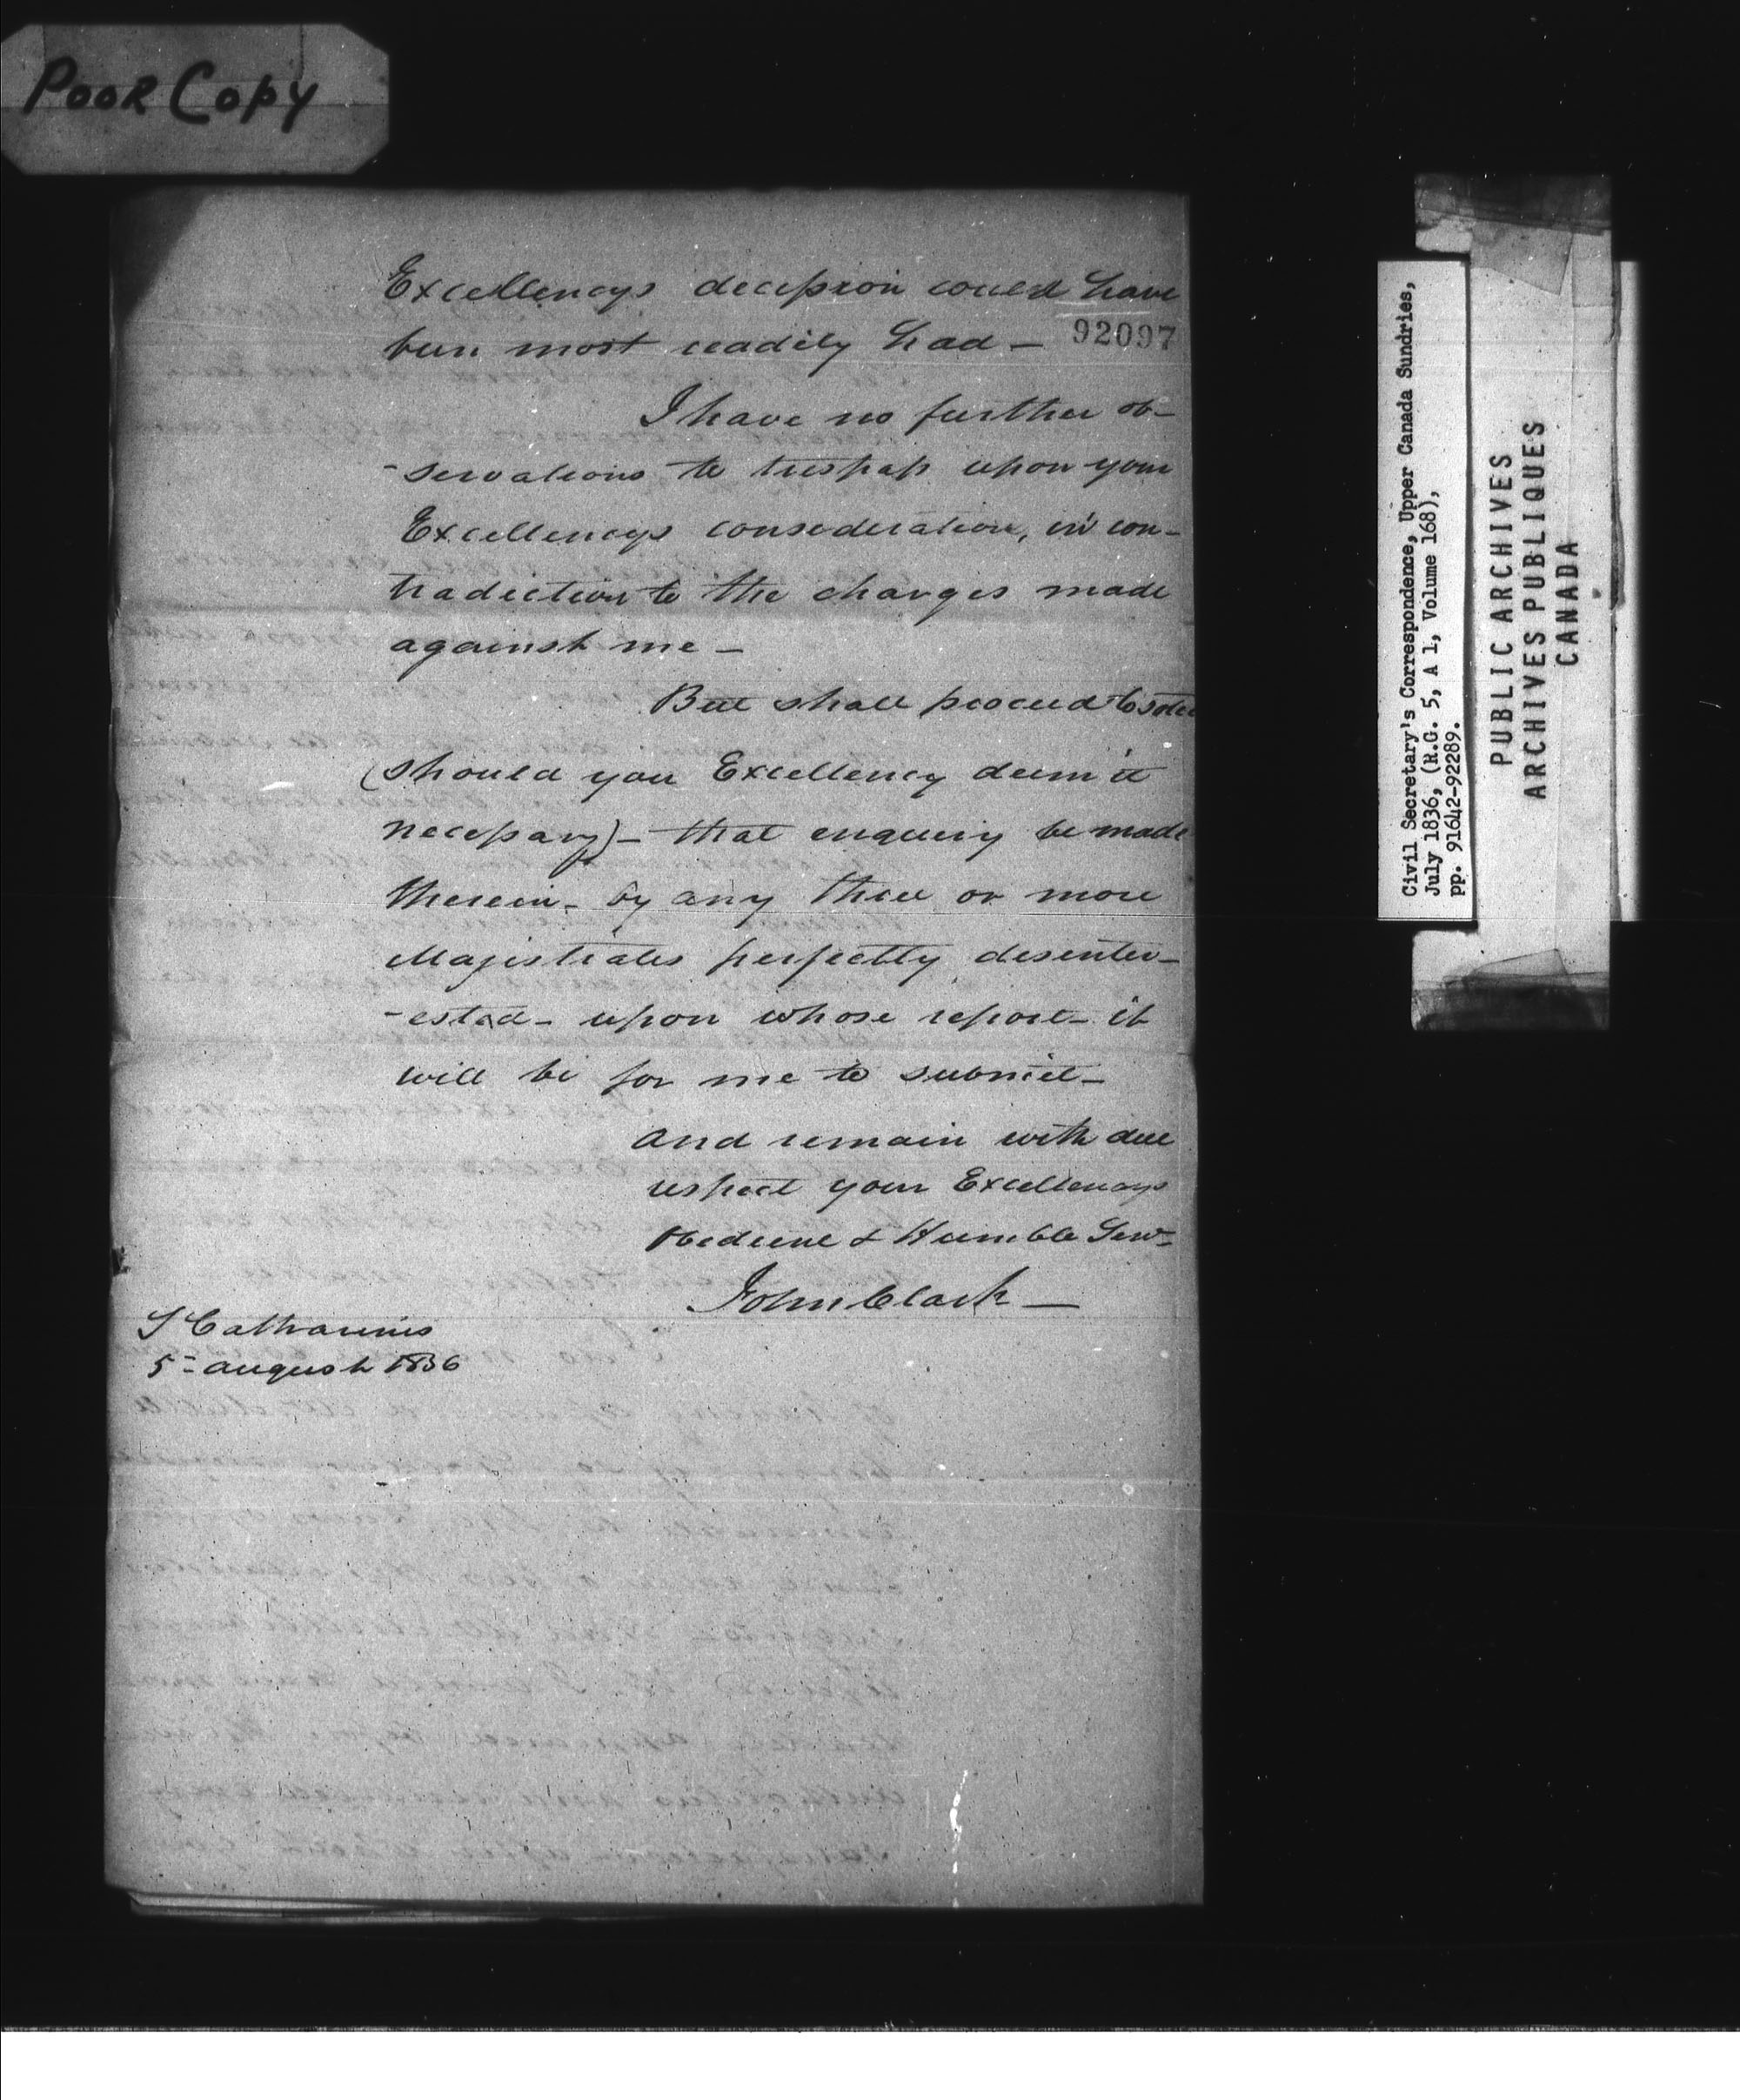 Poor Copy
Excellencys decission could have
been most readily had —
92097
I have no further ob-
-servations to trespass upon your
Excellencys consideration, in con-
tradiction to the charges made
against me —
But shall proceed to
(should your Excellency deem it
necessary) — that enquiry be made
therein - by any three or more
Magistrates perfectly desenter-
-ested - upon whose report - it
will be for me to submit —
and remain with due
respect your Excellencys
Obedient & Humble Serv-
John Clark —
St Catharines
5 - august 1836
Civil Secretary's Correspondence, Upper Canada Sundries,
July 1836, (R.G. 5, A 1, Volume 168),
pp. 91642-92289.
PUBLIC ARCHIVES
ARCHIVES PUBLIQUES
CANADA